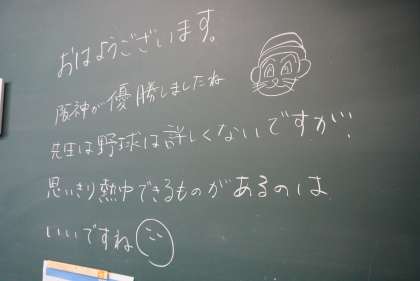 おはようございます。
阪神が優勝しましたね
先生は野球は詳しくないですが、
思いきり熱中できるものがあるのは
いいですね